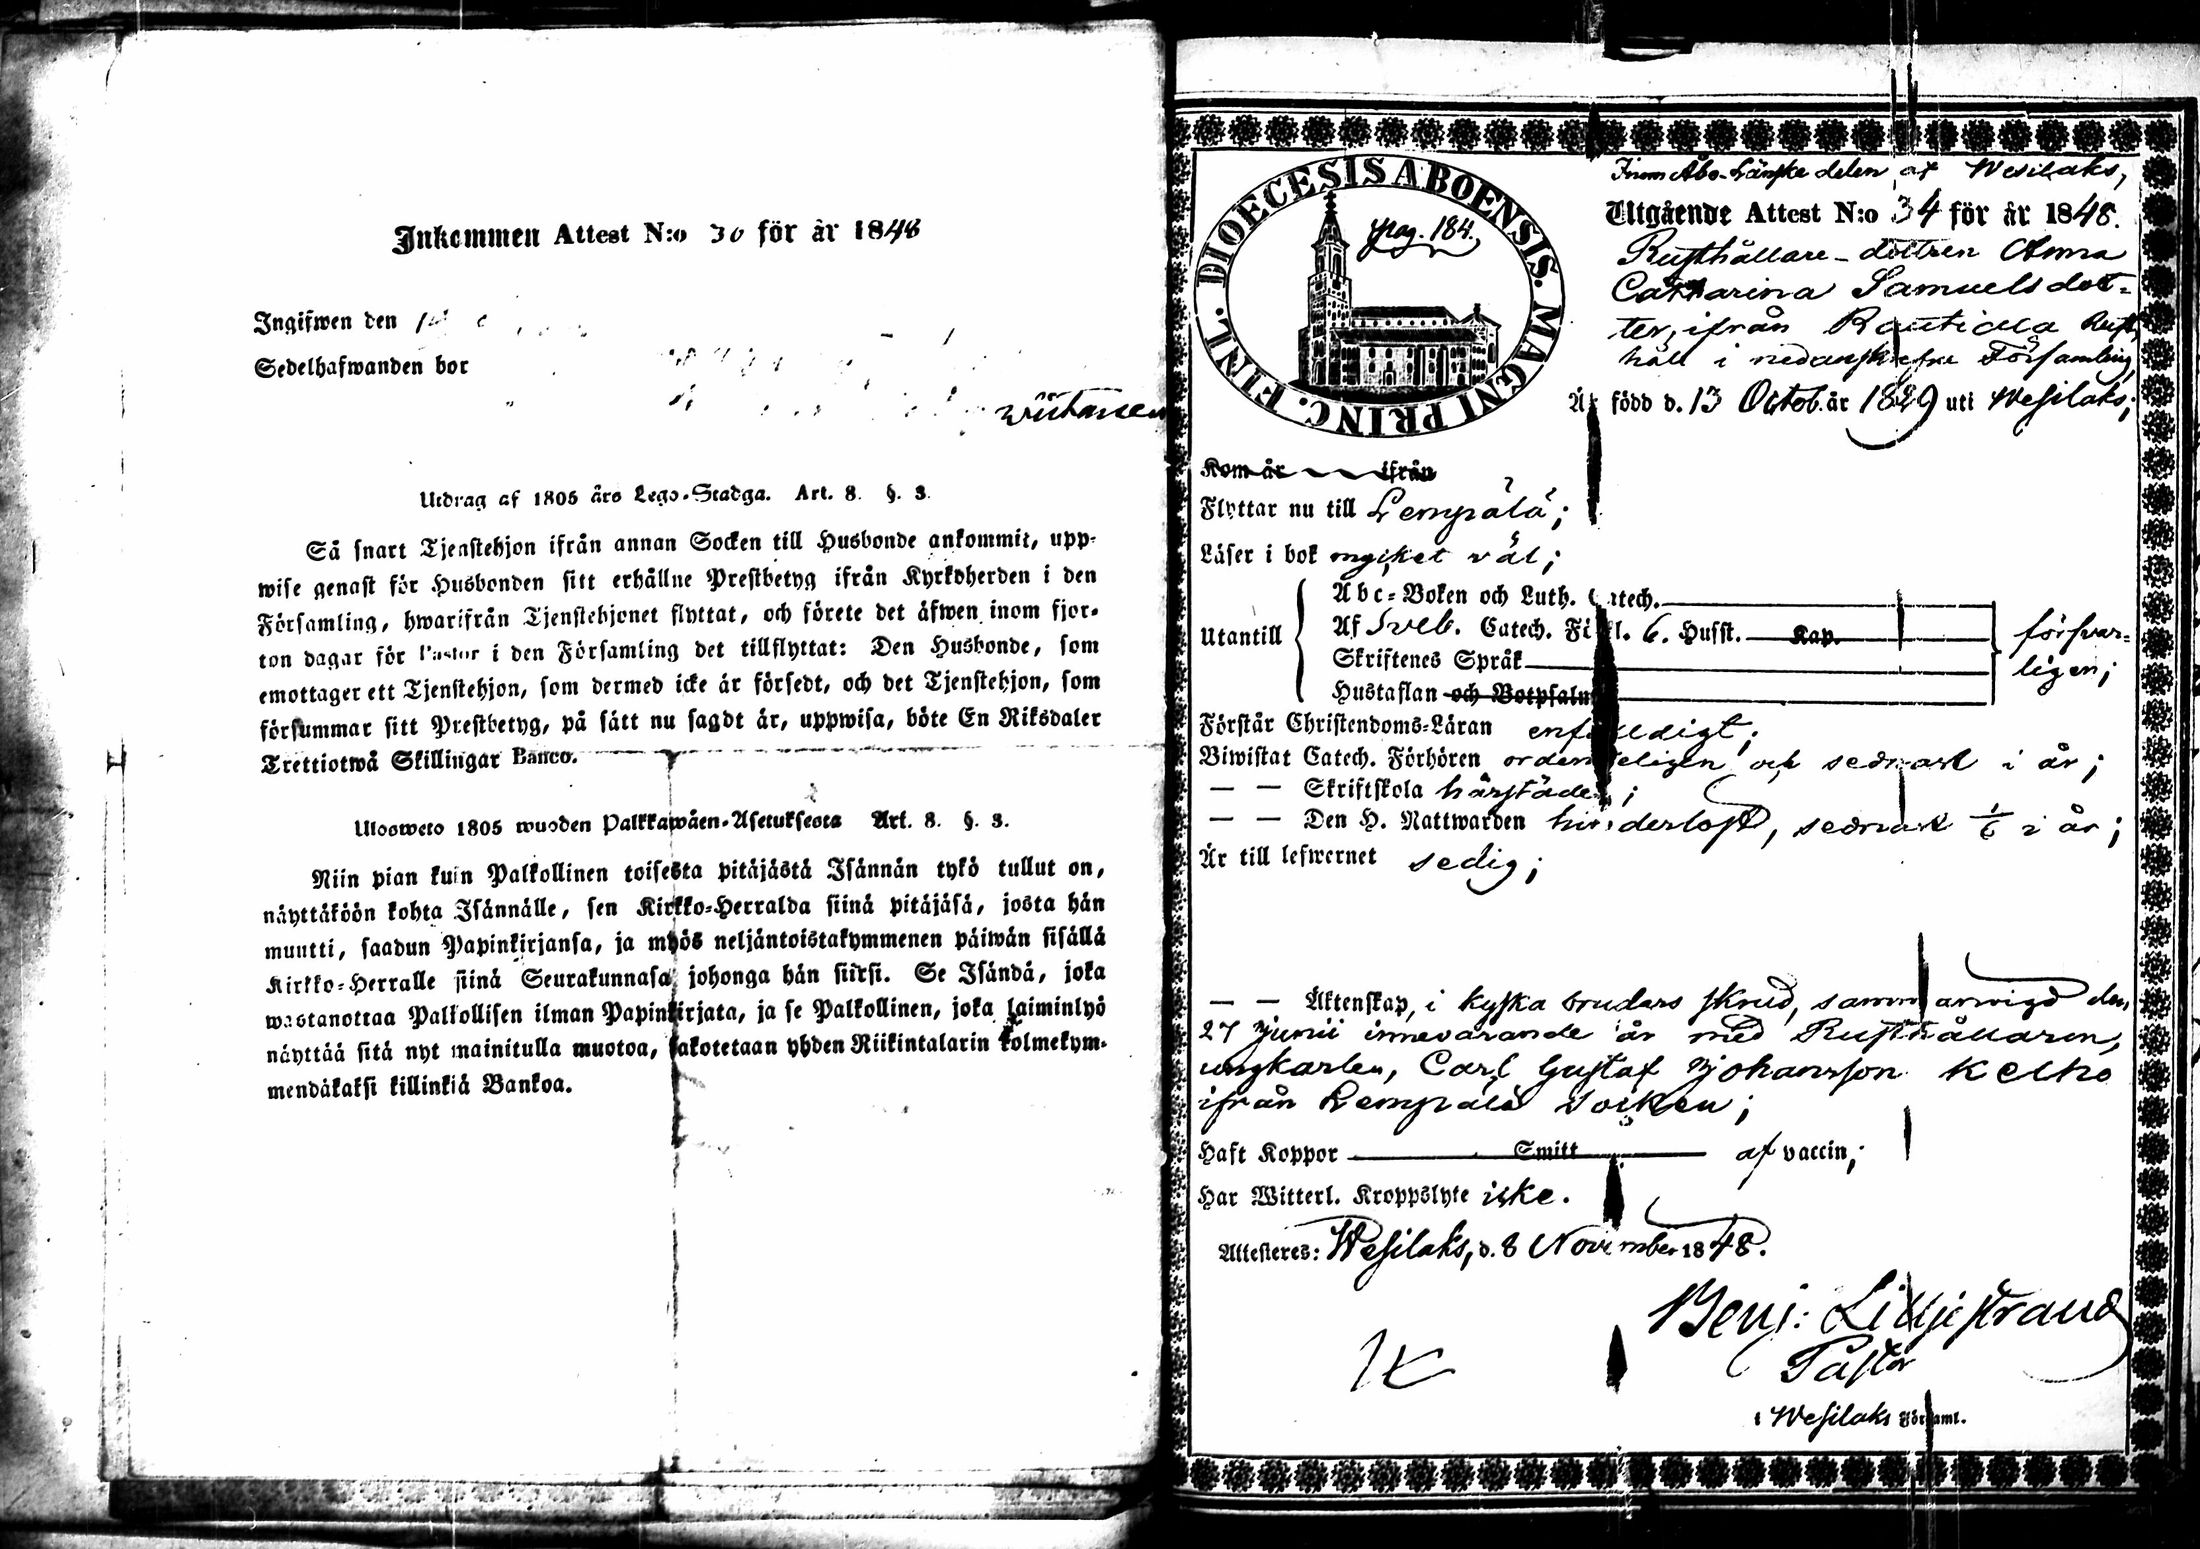 Inkommen Attest N:o 30 för år 1848
Ingifwen den
Sedelhafwanden bor
Utdrag af 1805 års Lego-Stadga. Art. 8. §. 3.
Så snart Tjenstehjon ifrån annan Socken till Husbonde ankommit, upp-
wise genast för Husbonden sitt erhållne Prestbetyg ifrån Kyrkoherden i den
Församling, hwarifrån Tjenstehjonet flyttat, och förete det äfwen inom fjor-
ton dagar för Pastor i den Församling det tillflyttat: Den Husbonde, som
emottager ett Tjenstehjon, som dermed icke är försedt, och det Tjenstehjon, som
försummar sitt Prestbetyg, på sätt nu sagdt är, uppwisa, böte En Riksdaler
Trettiotwå Skillingar Banco.
Ulosweto 1805 wuoden Palkkawäen-Asetuksesta Art. 8. §. 3.
Niin pian kuin Palkollinen toisesta pitäjästä Isännän tykö tullut on,
näyttäköön kohta Isännälle, sen Kirkko-Herralda siinä pitäjäsä, josta hän
muutti, saadun Papinkirjansa, ja myös neljäntoistakymmenen päiwän sisällä
Kirkko-Herralle siinä Seurakunnasa johonga hän siirsi. Se Isändä, joka
wastanottaa Palkollisen ilman Papinkirjata, ja se Palkollinen, joka laiminlyö
näyttää sitä nyt mainitulla muotoa, sakotetaan yhden Riikintalarin kolmekym-
mendäkaksi killinkiä Bankoa.
DIOECESIS ABOENSIS. MAGNI PRINC. FINL.
pag. 184.
Inom Åbo-Länska delen af Wesilaks,
Utgående Attest N:o 34 för år 1848.
Rusthållare-dottren Anna
Catharina Samuelsdot-
ter, ifrån Rautiala Rust-
håll i nedanskrefne Församling,
Är född d. 13 Octob. år 1829 uti Wesilaks;
Kom år ifrån
Flyttar nu till Lempälä;
Läser i bok mycket väl;
Utantill
Abc-Boken och Luth. Catech.
Af Sveb. Catech. Förkl. 6. Husst. Kap.
Skriftenes Språk
Hustaflan och Botpsalm
försvar-
ligen;
Förstår Christendoms-Läran enfalldigt;
Biwistat Catech. Förhören ordenteligen och sednast i år;
— — Skriftskola härstädes;
— — Den H. Nattwarden hinderlöst, sednast 1/6 i år;
Är till lefwernet sedig;
— — Äktenskap, i kyska bruders skrud, sammanvigd den
27 Junii innevarande år med Rusthållaren,
ungkarlen, Carl Gustaf Johansson Kelho
ifrån Lempälä Socken;
Haft Koppor Smitt af vaccin;
Har Witterl. Kroppslyte icke.
Attesteres: Wesilaks, d. 8 November 1848.
Benj. Lilljestrand
Pastor
i Wesilaks Församl.